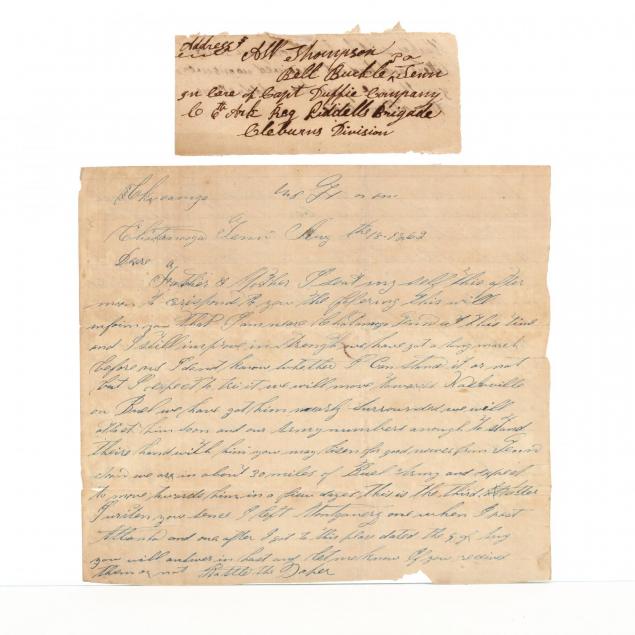 Address
A W Thompson
Bell Buckle Po Tenn
in Care of Capt Duffie Company
C 6th Ark Reg Liddells Brigade
Cleburns Division
Chattanooga Tenn Aug the 15 1862
Dear
Father & Mother I seat my self this after
noon to corispond to you the following this will
inform you that I am near Chatanooga Tenn at this time
and I still improve in strength we have got a long march
before us I dont know whether I Can stand it or not
but I expect to tri it we will move towards Nashville
on Buel we have got him nearly surrounded we will
attact him soon and our army numbers anough to stand
theire hand with him you may listen for good newes from Tenn
we are in about 30 miles of Buel Army and expect
to move towards him in a few dayes this is the third letter
I writen you sence I left Montgomery one when I past
Atlanta and one after I got to this place dated the 9 of Aug
you will answer in hast and let me know if you recieved
them or not the